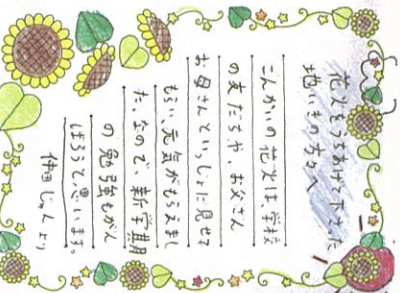 花火をうちあげて下さった
地いきの方々へ
こんかいの花火は、学校
の友だちや、お父さん
お母さんといっしょに見せて
もらい、元気がもらえまし
た。なので、新学期
の勉強もがん
ばろうと思います。
仲田じゅんより